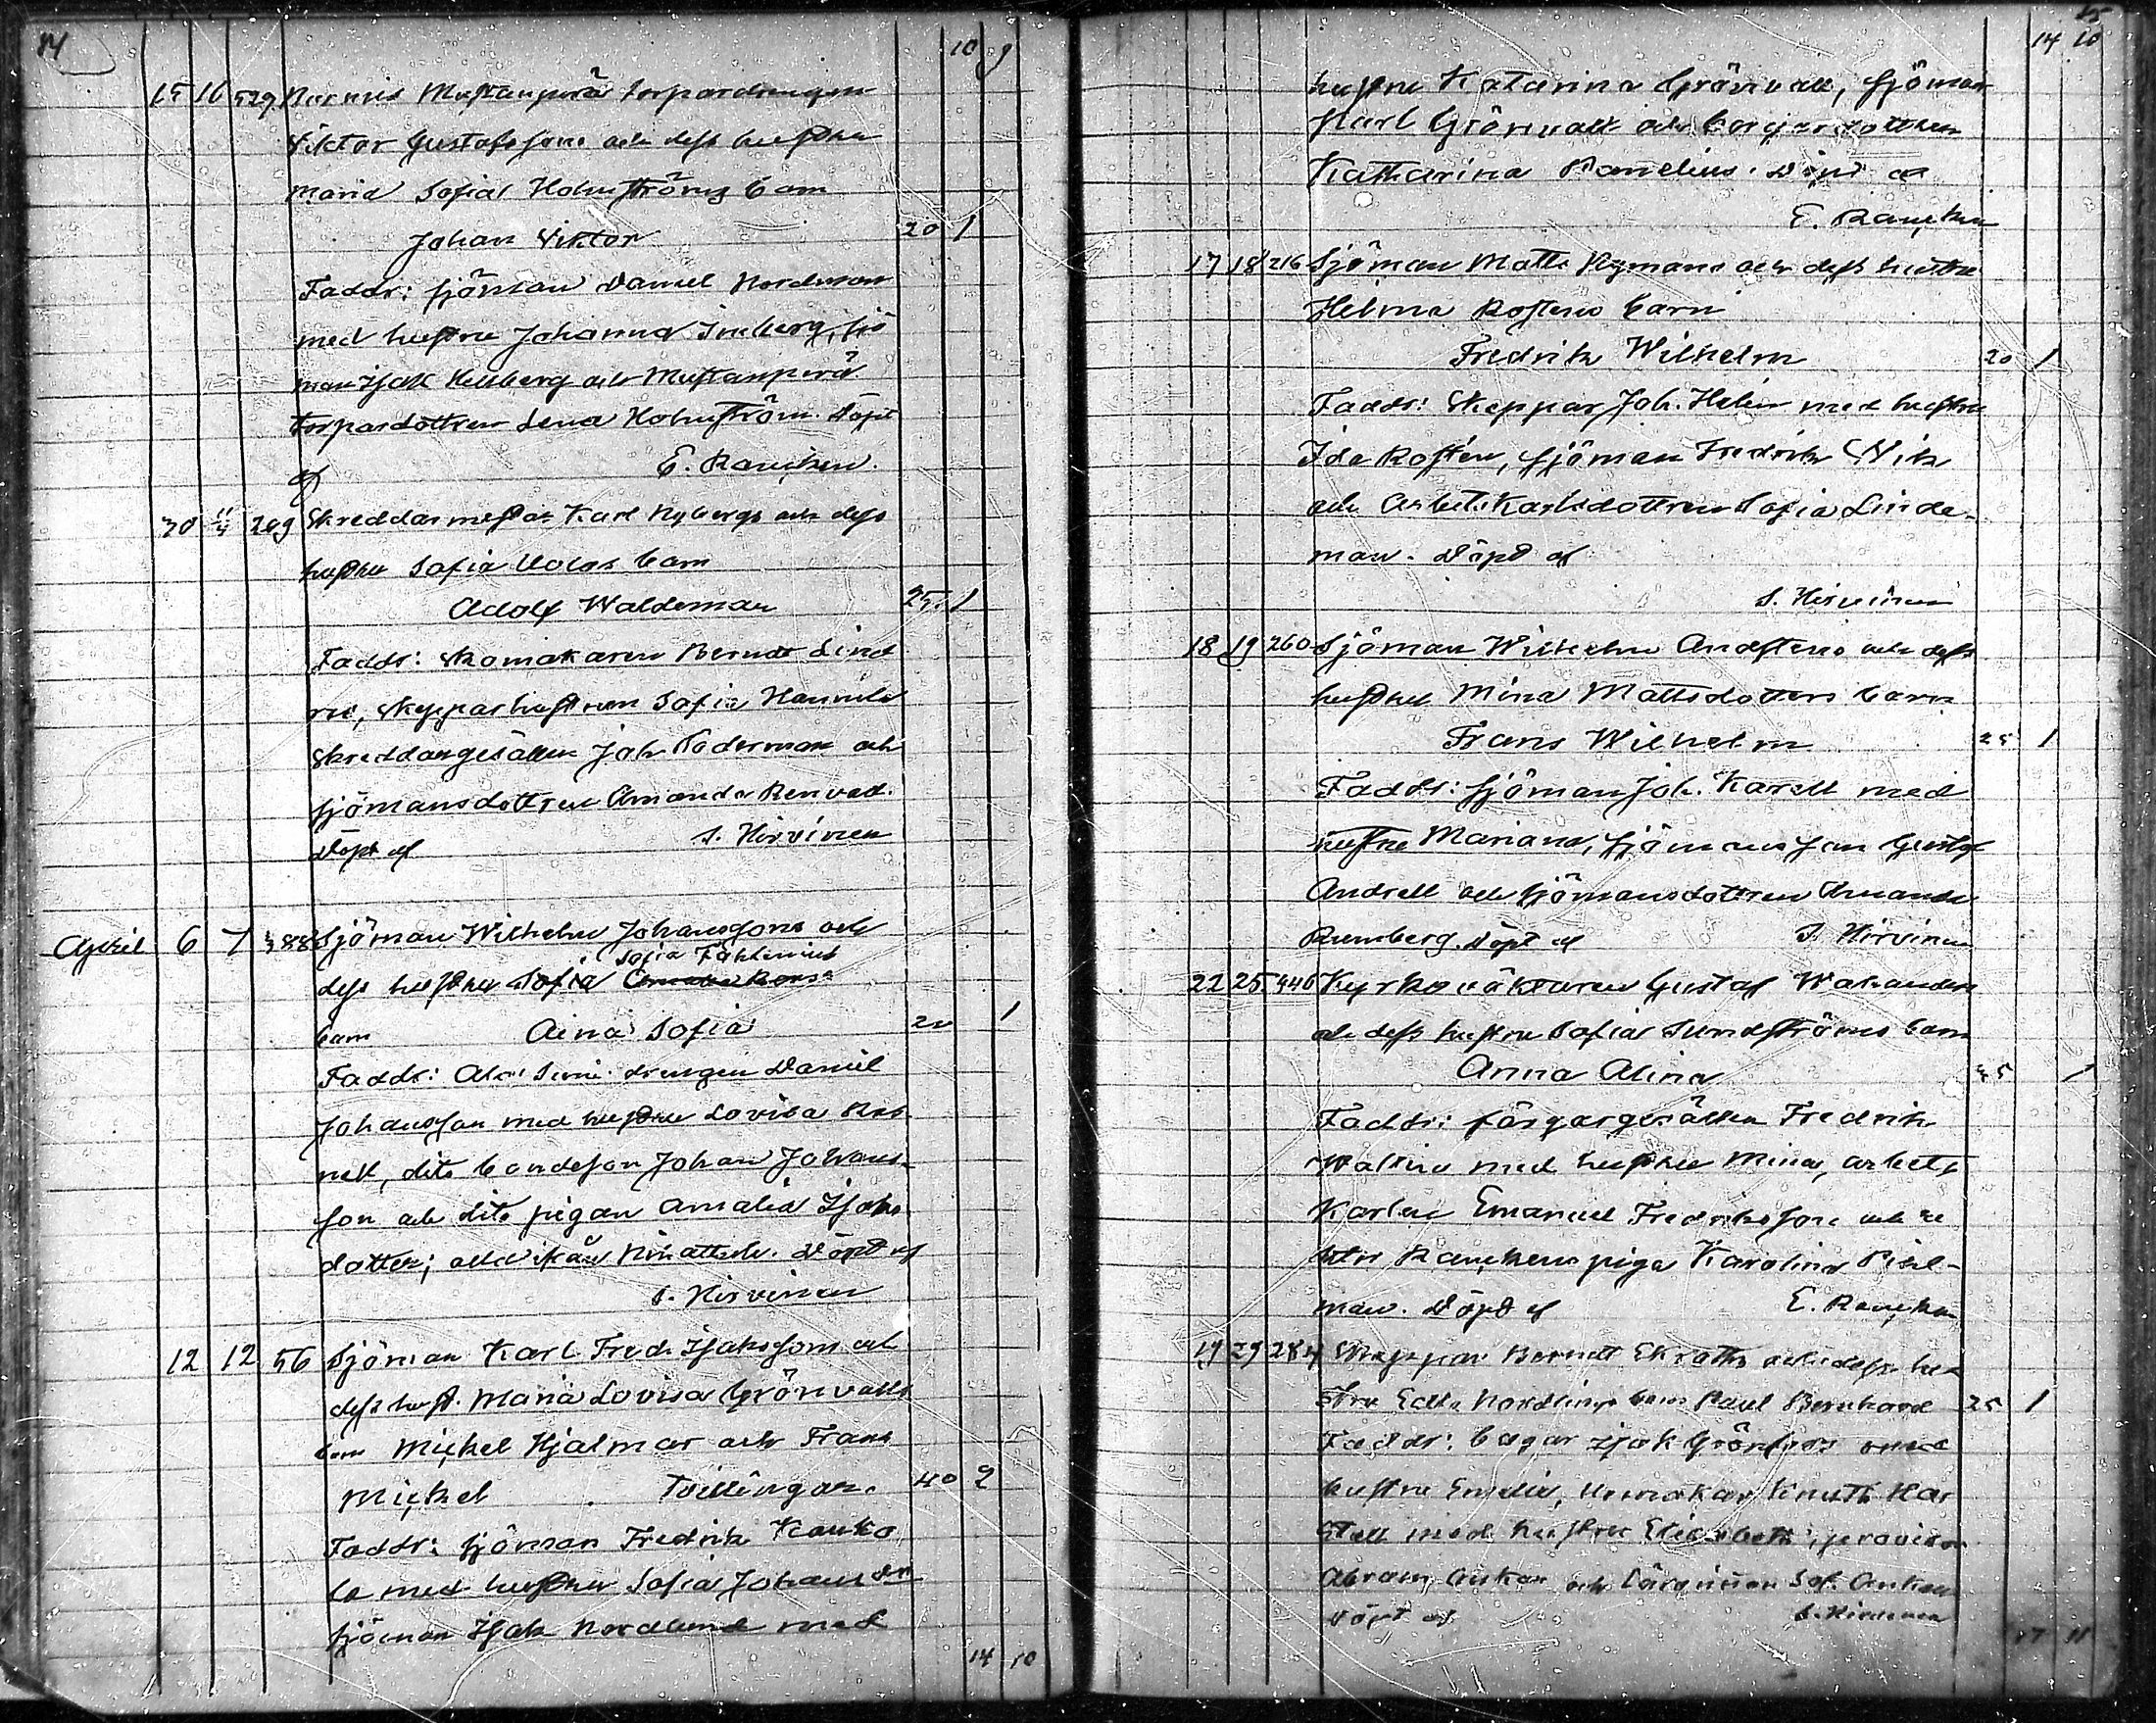 14
10 9
15 16 529 Nurmis Mustanperä torpardrengen
Viktor Gustafssons och dess hustru
Maria Sofia Holmströms barn
Johan Viktor 20 1
Faddr: sjöman Daniel Nordman
med hustru Johanna Inberg, sjö
man Isak Hellberg och Mustanperä
torpardottren Lena Holmström. Döpt
af E. Rancken.
30 4/4 289 Skreddarmestar Karl Nybergs och dess
hustru Sofia barn
Adolf Waldemar 25. 1
Faddr: Skomakaren Berndt Lind
, skepparhustrun Sofia Hannula
skreddargesällen Joh. Söderman och
sjömansdottren Amanda Renvall.
Döpt af S. Hirvinen
April 6 7 388 Sjöman Wilhelm Johanssons och
Sofia Fahlenius
dess hustru Sofia
barn Aina Sofia 20 1
Faddr: drengen Daniel
Johansson med hustru Lovisa Ros
nell, dito bondeson Johan Johans-
son och dito pigan Amalia Isaks
dotter; alla ifrån . Döpt af
S. Hirvinen
12 12 56 Sjöman Karl Fredr. Isakssons och
dess hust. Maria Lovisa Grönvalls
barn Mickel Hjalmar och Frans
Mickel Tvillingar. 40 2
Faddr: sjöman Fredrik Kauko
la med hustru Sofia Johansdr
sjöman Isak Nordlund med
14 10
15
14 10
hustru Katarina Grönvall, sjöman
Karl Grönvall och borgardottren
Katharina Ranelius. Döpt af
E. Rancken
17 18 216 Sjöman Matts Nymans och dess hustru
Helena Rostens barn
Fredrik Wilhelm 20 1
Faddr: Skeppar Joh. Helin med hustru
Ida Rostén, sjöman Fredrik Wik
och arbetskarlsdottren Sofia Linde-
man. Döpt af
S. Hirvinen
18 19 260 Sjöman Wilhelm Andstens och dess
hustru Mina Mattsdotters barn
Frans Wilhelm 25 1
Faddr: sjöman Joh. Karell med
hustru Mariana, sjömansson Gustaf
Andsell och sjömansdottren Amanda
Rumberg. Döpt af S. Hirvinen
22 25 446 Kyrkovaktaren Gustaf Wahlanders
och dess hustru Sofia Sundströms barn
Anna Alina 25 1
Faddr: färgargesällen Fredrik
Wallin med hustru Mina, arbets
karlen Emanuel Fredriksson och
Ranckens piga Karolina
man. Döpt af E. Rancken
19 29 284 Skeppar Berndt Ekroths och dess hu
stru Edla Nordlings barn Paul Bernhard 25 1
Faddr: Isak Grönfors med
hustru Emelie, urmakar Knuth Har
tell med hustru Elisabeth, provisor
Abram och Sof.
Döpt af S. Hirvinen
17 11